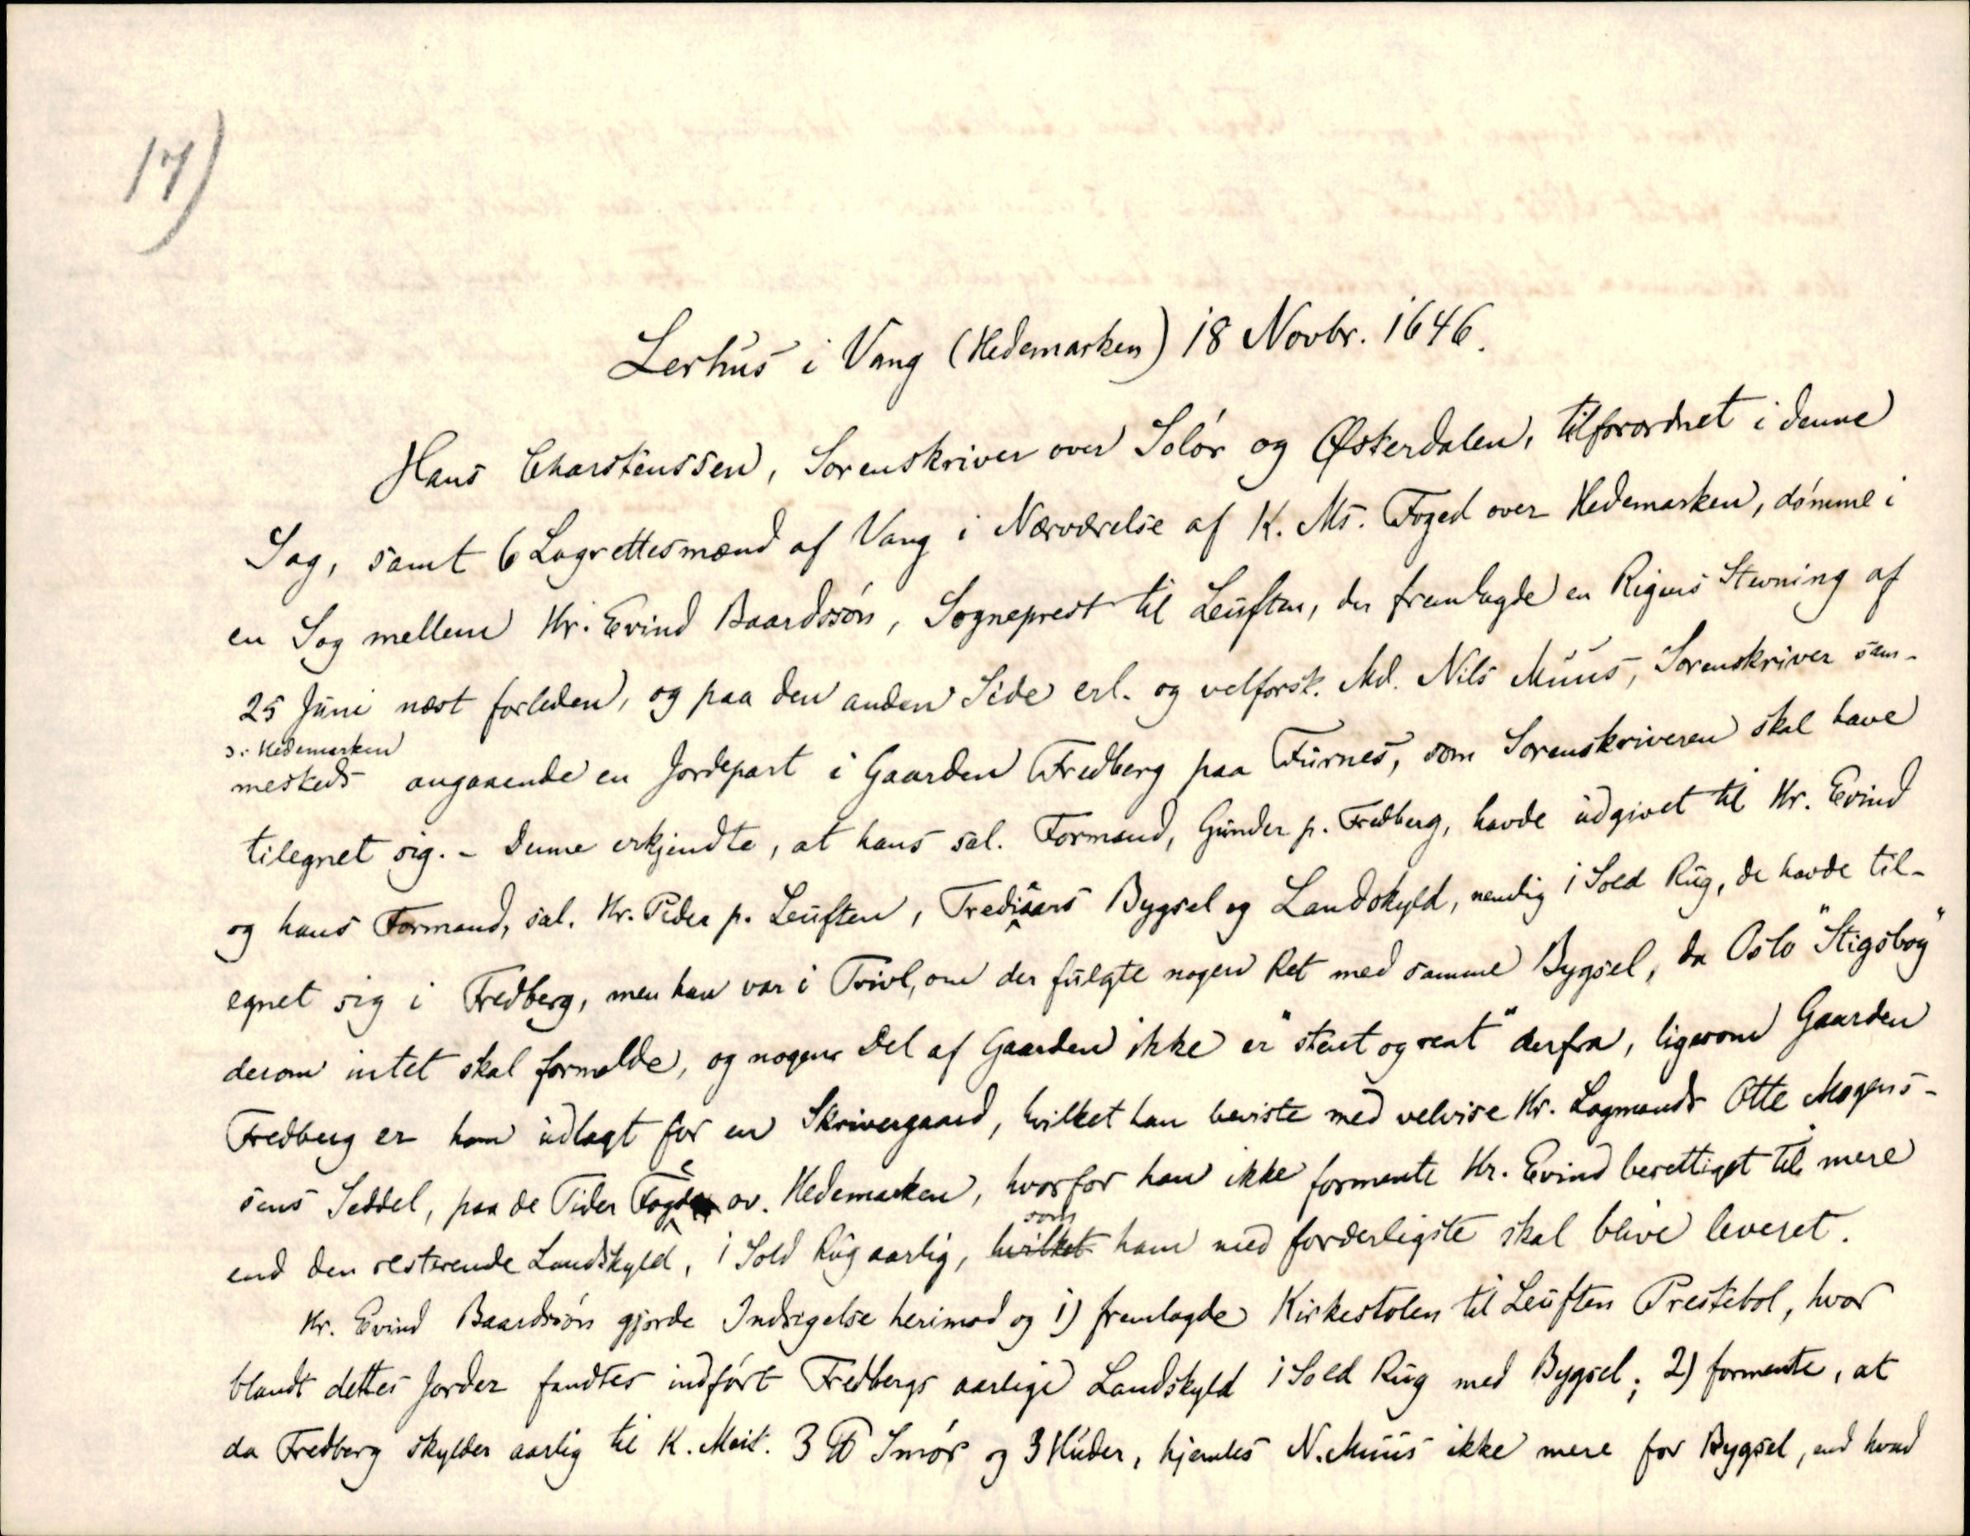 17)
Lerhus i Vang (Hedemarken) 18 Novbr. 1646.
Hans Charstenssen, Sorenskriver over Solør og Østerdalen, tilforordnet i denne
Sag, samt 6 Lagrettesmænd af Vang i Nærværelse af K. Ms. Foged over Hedemarken, dømme i
en Sag mellem Hr. Evind Baardssøn, Sogneprest til Leuften, der fremlagde en Rigens Stevning af
25 Juni næst forleden, og paa den anden Side erl. og velforst. Md. Nils Muus, Sorenskriver sam-
ɔ: Hedemarken
mesteds angaaende en Jordepart i Gaarden Fredberg paa Furnes, som Sorenskriveren skal have
tilegnet sig. - Denne erkjendte, at hans sal. Formand, Gunder p. Fredberg, havde udgivet til Hr. Evind
og hans Formand, sal. Hr. Peder p. Leuften, Trediaars Bygsel og Landskyld, nemlig 1 Sold Rug, de havde til-
egnet sig i Fredberg, men han var i Tvivl, om der fulgte nogen Ret med samme Bygsel, da Oslo "Stigsbog"
derom intet skal formelde, og nogen Del af Gaarden ikke er "stent og rent" derfra, ligesom Gaarden
Fredberg er ham udlagt for en Skrivergaard, hvilket han beviste med velvise Hr. Lagmands Otte Mogens-
sens Seddel, paa de Tider Foged ov. Hedemarken, hvorfor han ikke formente Hr. Evind berettiget til mere
end den resterende Landskyld, 1 Sold Rug aarlig, hvilket som ham med forderligste skal blive leveret.
Hr. Evind Baardssøn gjorde Indsigelse herimod og 1) fremlagde Kirkestolen til Leuften Prestebol, hvor
blandt dettes Jorder fandtes indført Fredbergs aarlige Landskyld 1 Sold Rug med Bygsel; 2) formente, at
da Fredberg skylder aarlig til K. Mait. 3 ℔ Smør og 3 Huder, hjemles N. Muus ikke mere for Bygsel, end hvad